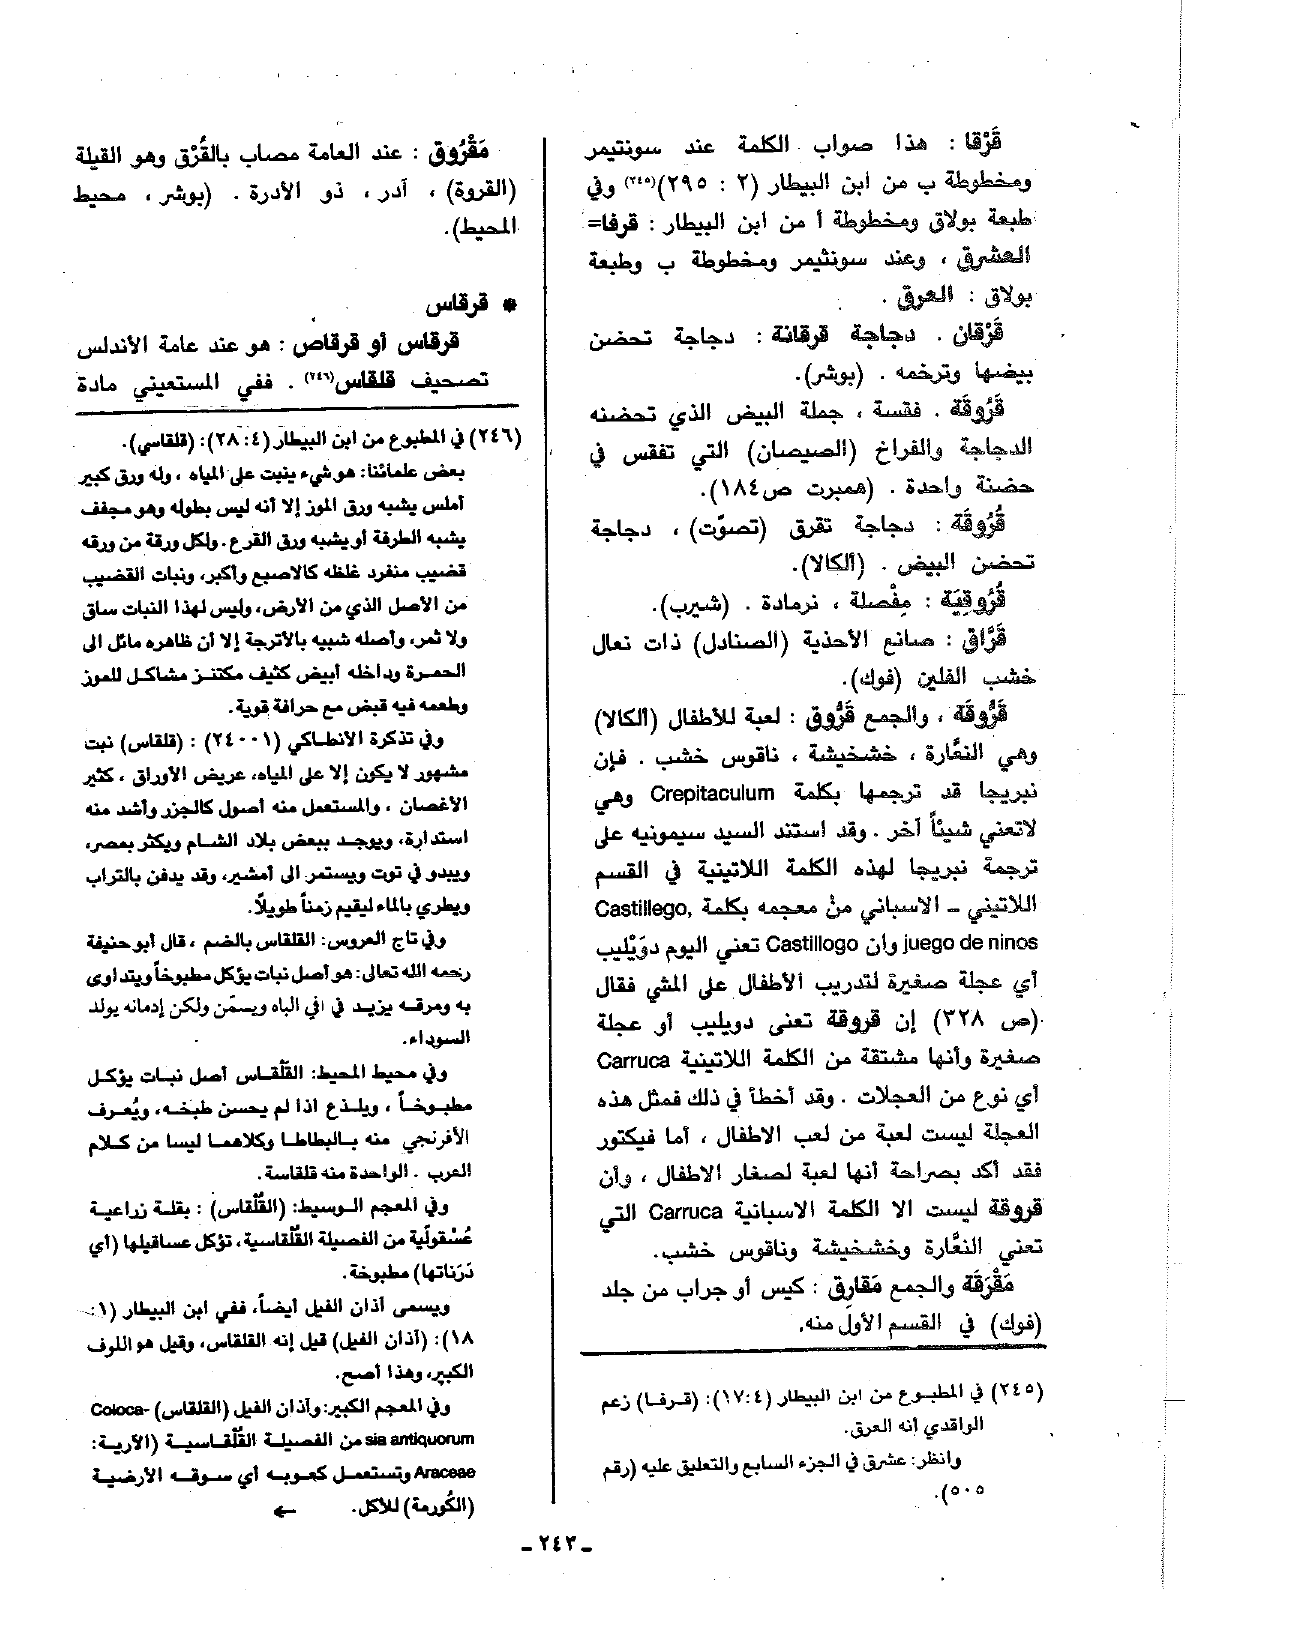 قَرْقا : هذا صواب الكلمة عند سونتيمر
ومخطوطة ب من ابن البيطار (٢ : ٢٩٥)(٢٤٥) وفي
طبعة بولاق ومخطوطة أ من ابن البيطار : قرفا=
العشرق ، وعند سونثيمر ومخطوطة ب وطبعة
بولاق : العرق .
قَرْقان . دجاجة قرقانة : دجاجة تحضن
بيضها وترخمه . (بوشر).
قَرُوقَة . فقسة ، جملة البيض الذي تحضنه
الدجاجة والفراخ (الصيصان) التي تفقس في
حضنة واحدة . (همبرت ص١٨٤).
قُرُوقَة : دجاجة تقرق (تصوّت) ، دجاجة
تحضن البيض . (ألكالا).
قُرُوقِيَة : مِفْصلة ، نرمادة . (شيرب).
قَرَّاق : صانع الأحذية (الصنادل) ذات نعال
خشب الفلين (فوك).
قَرُّوقَة ، والجمع قَرُّوق : لعبة للأطفال (ألكالا)
وهي النعَّارة ، خشخيشة ، ناقوس خشب . فإن
نبريجا قد ترجمها بكلمة Crepitaculum وهي
لاتعني شيئاً آخر . وقد استند السيد سيمونيه على
ترجمة نبريجا لهذه الكلمة اللاتينية في القسم
اللاتيني ـ الاسباني من معجمه بكلمة Castillego,
juego de ninos وأن Castillogo تعني اليوم دوَيْليب
أي عجلة صغيرة لتدريب الأطفال على المشي فقال
(ص ٣٢٨) إن قروقة تعنى دويليب أو عجلة
صغيرة وأنها مشتقة من الكلمة اللاتينية Carruca
أي نوع من العجلات . وقد أخطأ في ذلك فمثل هذه
العجلة ليست لعبة من لعب الاطفال ، أما فيكتور
فقد أكد بصراحة أنها لعبة لصغار الاطفال ، وأن
قروقة ليست الا الكلمة الاسبانية Carruca التي
تعني النعَّارة وخشخيشة وناقوس خشب.
مَقْرَقَة والجمع مَقارِق : كيس أو جراب من جلد
(فوك) في القسم الأول منه.
(٢٤٥) في المطبوع من ابن البيطار (٤:١٧): (قرفا) زعم
الواقدي أنه العرق.
وانظر: عشرق في الجزء السابع والتعليق عليه (رقم
٥٠٥).
مَقْرُوق : عند العامة مصاب بالقُرْق وهو القيلة
(القروة) ، آدر ، ذو الأدرة . (بوشر ، محيط
المحيط).
* قرقاس
قرقاس أو قرقاص : هو عند عامة الأندلس
تصحيف قلقاس(٢٤٦) . ففي المستعيني مادة
(٢٤٦) في المطبوع من ابن البيطار (٤ :٢٨): (قلقاسي).
بعض علمائنا: هو شيء ينبت على المياه ، وله ورق كبير
أملس يشبه ورق الموز إلا أنه ليس بطوله وهو مجفف
يشبه الطرفة أو يشبه ورق القرع . ولكل ورقة من ورقه
قضيب منفرد غلظه كالاصبع وأكبر، ونبات القضيب
من الأصل الذي من الأرض، وليس لهذا النبات ساق
ولا ثمر، وأصله شبيه بالأترجة إلا أن ظاهره مائل الى
الحمرة وداخله أبيض كثيف مكتنز مشاكل للموز
وطعمه فيه قبض مع حرافة قوية.
وفي تذكرة الانطاكي (٢٤٠٠١) : (قلقاس) نبت
مشهور لا يكون إلا على المياه، عريض الأوراق ، كثير
الأغصان ، والمستعمل منه أصول كالجزر وأشد منه
استدارة، ويوجد ببعض بلاد الشام ويكثر بمصر،
ويبدو في توت ويستمر الى أمشير، وقد يدفن بالتراب
ويطري بالماء ليقيم زمناً طويلاً.
وفي تاج العروس: القلقاس بالضم ، قال أبو حنيفة
رحمه الله تعالى: هو أصل نبات يؤكل مطبوخاً ويتداوى
به ومرقه يزيد في افي الباه ويسمّن ولكن إدمانه يولد
السوداء.
وفي محيط المحيط: القُلْقاس أصل نبات يؤكل
مطبوخاً ، ويلذع اذا لم يحسن طبخه، ويُعرف
الأفرنجي منه بالبطاطا وكلاهما ليسا من كلام
العرب . الواحدة منه قلقاسة.
وفي المعجم الوسيط: (القُلْقاس) : بقلة زراعية
عُسْقولية من الفصيلة القُلْقاسية، تؤكل عساقيلها (أي
دَرَناتها) مطبوخة.
ويسمى آذان الفيل أيضاً، ففي ابن البيطار (١ :
١٨): (آذان الفيل) قيل إنه القلقاس، وقيل هو اللوف
الكبير، وهذا أصح.
وفي المعجم الكبير: وآذان الفيل (القلقاس) Coloca-
sia antiquorum من الفصيلة القُلْقاسية (الآرية:
Araceae وتستعمل كعوبه أي سوقه الأرضية
(الكُورمة) للأكل. ←
ـ ٢٤٣ ـ